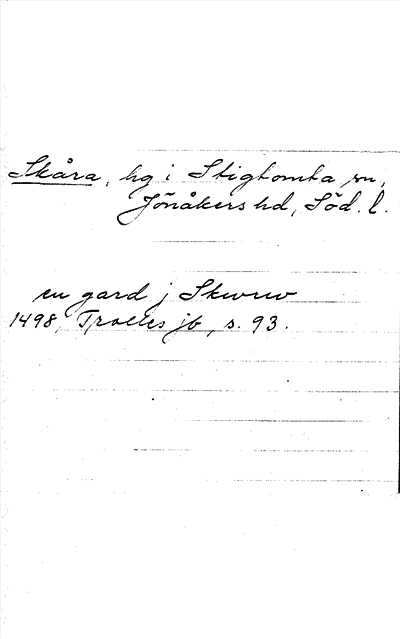 Skåra, hg i Stigtomta sn,
Jönåkers hd, Söd. l.
en gard j Skwrw
1498, Trolles jb, s. 93.